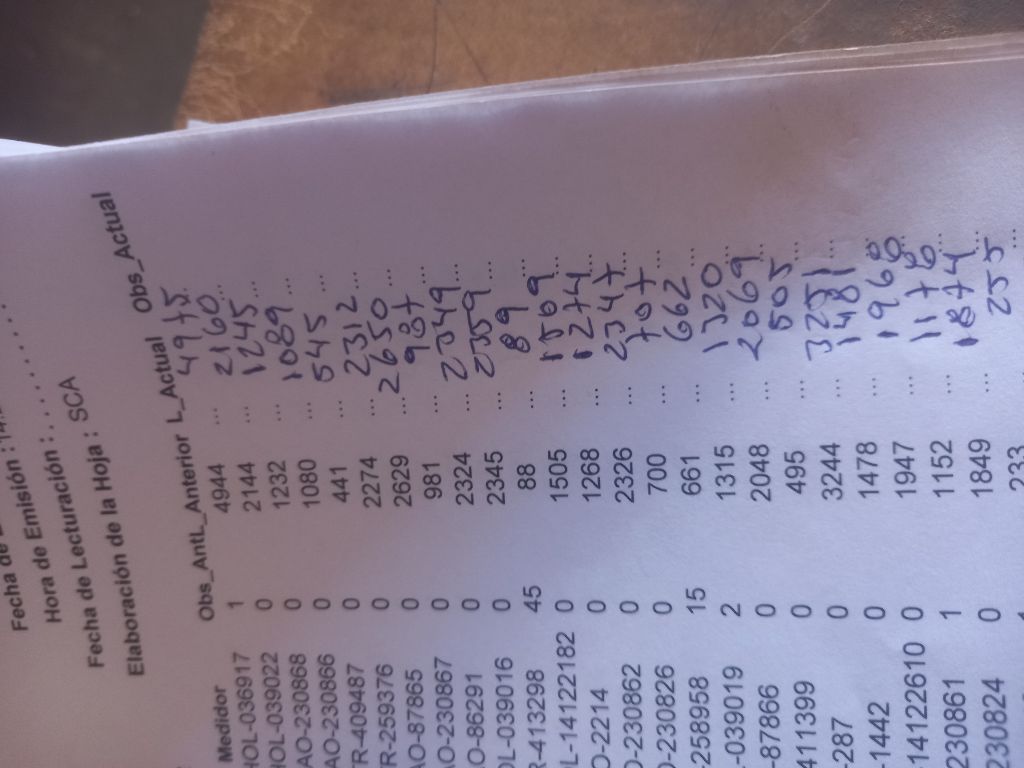 Fecha de
Hora de Emisión :
Fecha de Lecturación :
Elaboración de la Hoja : SCA
Medidor Obs_Ant L_Anterior L_Actual Obs_Actual
HOL-036917 1 4944 ... 4975 ...
HOL-039022 0 2144 ... 2160 ...
AO-230868 0 1232 ... 1245 ...
AO-230866 0 1080 ... 1089 ...
TR-409487 0 441 ... 545 ...
TR-259376 0 2274 ... 2312 ...
AO-87865 0 2629 ... 2650 ...
AO-230867 0 981 ... 987 ...
AO-86291 0 2324 ... 2349 ...
OL-039016 0 2345 ... 2359 ...
R-413298 45 88 ... 89 ...
L-14122182 0 1505 ... 1509 ...
O-2214 0 1268 ... 1274 ...
O-230862 0 2326 ... 2347 ...
O-230826 0 700 ... 707 ...
258958 15 661 ... 662 ...
-039019 2 1315 ... 1320 ...
-87866 0 2048 ... 2069 ...
411399 0 495 ... 505 ...
-287 0 3244 ... 3251 ...
-1442 0 1478 ... 1481 ...
14122610 0 1947 ... 1968 ...
230861 1 1152 ... 1176 ...
230824 0 1849 ... 1874 ...
233 ... 255 ...